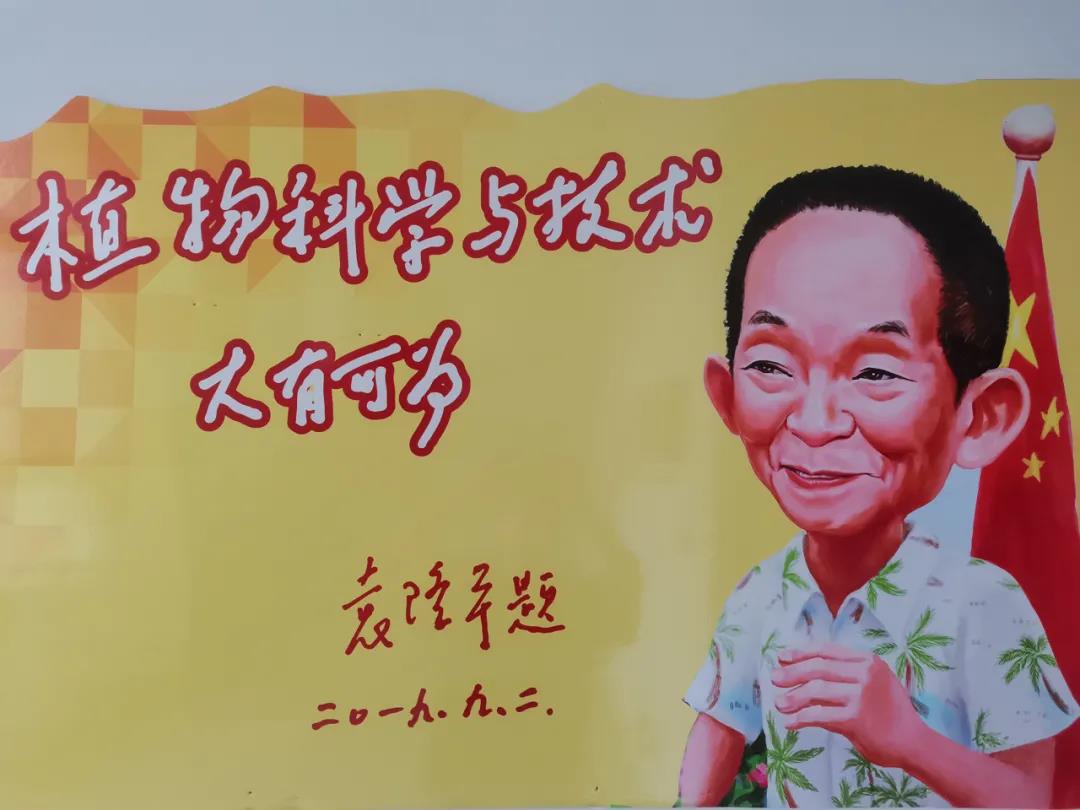 植物科学与技术
大有可为
袁隆平题
二〇一九.九.二.